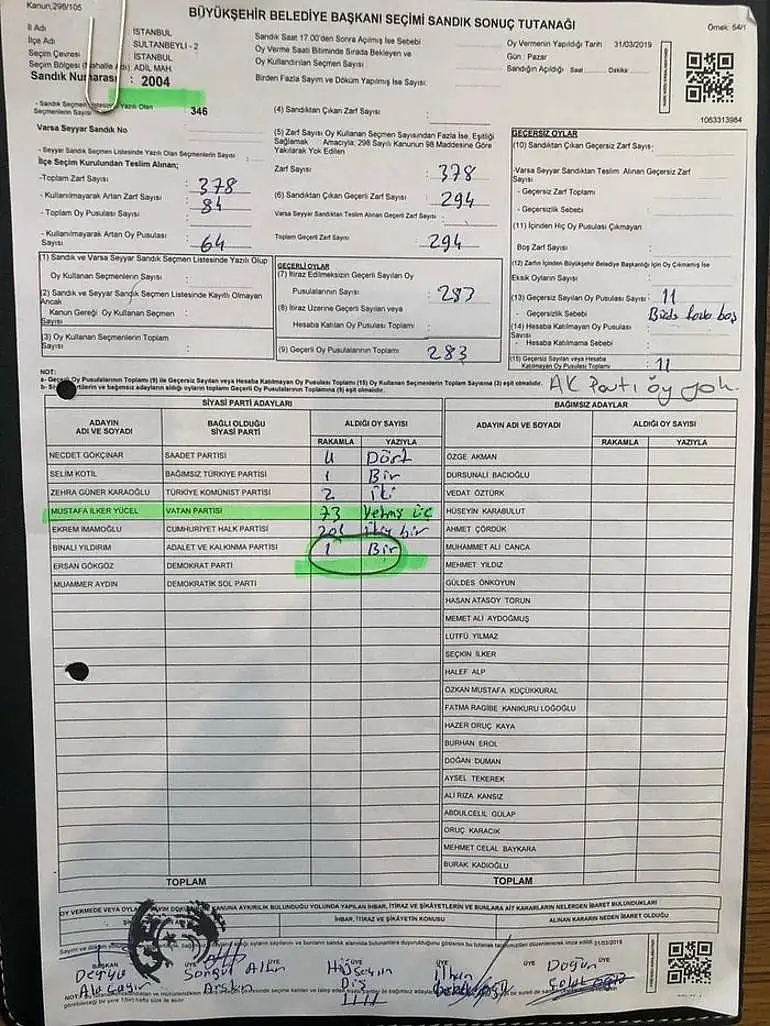 Kanun,298/105
BÜYÜKŞEHİR BELEDİYE BAŞKANI SEÇİMİ SANDIK SONUÇ TUTANAĞI
Örnek: 54/1
İl Adı : İSTANBUL
İlçe Adı SULTANBEYLİ - 2
Seçim Çevresi : İSTANBUL
Seçim Bölgesi (Mahalle Adı): ADİL MAH
Sandık Numarası : 2004
Sandık Saat 17.00'den Sonra Açılmış İse Sebebi
Oy Verme Saati Bitiminde Sırada Bekleyen ve
Oy Kullandırılan Seçmen Sayısı
Birden Fazla Sayım ve Döküm Yapılmış İse Sayısı:
Oy Vermenin Yapıldığı Tarih : 31/03/2019
Gün : Pazar
Sandığın Açıldığı Saat Dakika
1063313984
- Sandık Seçmen Listesinde Yazılı Olan
Seçmenlerin Sayısı 346
Varsa Seyyar Sandık No
- Seyyar Seçmen Listesinde Yazılı Olan Seçmenlerin Sayısı :
İlçe Seçim Kurulundan Teslim Alınan;
-Toplam Zarf Sayısı : 378
- Kullanılmayarak Artan Zarf Sayısı : 84
- Toplam Oy Pusulası Sayısı :
- Kullanılmayarak Artan Oy Pusulası
Sayısı : 64
(4) Sandıktan Çıkan Zarf Sayısı :
(5) Zarf Sayısı Oy Kullanan Seçmen Sayısından Fazla İse, Eşitliği
Sağlamak Amacıyla; 298 Sayılı Kanunun 98.Maddesine Göre
Yakılarak Yok Edilen
Zarf Sayısı : 378
(6) Sandıktan Çıkan Geçerli Zarf Sayısı : 294
Varsa Seyyar Sandıktan Teslim Alınan Geçerli Zarf Sayısı :
Toplam Geçerli Zarf Sayısı : 294
GEÇERSİZ OYLAR
(10) Sandıktan Çıkan Geçersiz Zarf Sayısı
-Varsa Seyyar Sandıktan Teslim Alınan Geçersiz Zarf
Sayısı
- Geçersiz Zarf Toplamı :
- Geçersizlik Sebebi :
(11) İçinden Hiç Oy Pusulası Çıkmayan
Boş Zarf Sayısı :
(12) Zarfın İçinden Büyükşehir Belediye Başkanlığı İçin Oy Çıkmamış İse
Eksik Oyların Sayısı :
(13) Geçersiz Sayılan Oy Pusulası Sayısı : 11
- Geçersizlik Sebebi :
(14) Hesaba Katılmayan Oy Pusulası
Sayısı :
- Hesaba Katılmama Sebebi :
(15) Geçersiz Sayılan veya Hesaba
Katılmayan Oy Pusulası Toplamı : 11
(1) Sandık ve Varsa Seyyar Sandık Seçmen Listesinde Yazılı Olup
Oy Kullanan Seçmenlerin Sayısı :
(2) Sandık ve Seyyar Sandık Seçmen Listesinde Kayıtlı Olmayan
Ancak
Kanun Gereği Oy Kullanan Seçmenlerin :
Sayısı
(3) Oy Kullanan Seçmenlerin Toplam
Sayısı :
GEÇERLİ OYLAR
(7) İtiraz Edilmeksizin Geçerli Sayılan Oy
Pusulalarının Sayısı : 283
(8) İtiraz Üzerine Geçerli Sayılan veya
Hesaba Katılan Oy Pusulası Toplamı :
(9) Geçerli Oy Pusulalarının Toplamı : 283
NOT:
a- Geçerli Oy Pusulalarının Toplamı (9) ile Geçersiz Sayılan veya Hesaba Katılmayan Oy Pusulası Toplamı (15) Oy Kullanan Seçmenlerin Toplam Sayısına (3) eşit olmalıdır.
AK Parti öy yok.
SİYASİ PARTİ ADAYLARI
BAĞIMSIZ ADAYLAR
ADAYIN ADI VE SOYADI BAĞLI OLDUĞU SİYASİ PARTİ ALDIĞI OY SAYISI ADAYIN ADI VE SOYADI ALDIĞI OY SAYISI
RAKAMLA YAZIYLA RAKAMLA YAZIYLA
NECDET GÖKÇINAR SAADET PARTİSİ 4 Dört ÖZGE AKMAN
SELİM KOTİL BAĞIMSIZ TÜRKİYE PARTİSİ 1 Bir DURSUNALİ BACIOĞLU
ZEHRA GÜNER KARAOĞLU TÜRKİYE KOMÜNİST PARTİSİ 2 iki VEDAT ÖZTÜRK
MUSTAFA İLKER YÜCEL VATAN PARTİSİ 73 Yetmiş üç HÜSEYİN KARABULUT
EKREM İMAMOĞLU CUMHURİYET HALK PARTİSİ 201 AHMET ÇÖRDÜK
BİNALİ YILDIRIM ADALET VE KALKINMA PARTİSİ 1 Bir MUHAMMET ALİ CANCA
ERSAN GÖKGÖZ DEMOKRAT PARTİ MEHMET YILDIZ
MUAMMER AYDIN DEMOKRATİK SOL PARTİ GÜLDES ÖNKOYUN
HASAN ATASOY TORUN
MEMET ALİ AYDOĞMUŞ
LÜTFÜ YILMAZ
SEÇKİN İLKER
HALEF ALP
ÖZKAN MUSTAFA KÜÇÜKKURAL
FATMA RAGİBE KANIKURU LOĞOĞLU
HAZER ORUÇ KAYA
BURHAN EROL
DOĞAN DUMAN
AYSEL TEKEREK
ALİ RIZA KANSIZ
ABDULCELİL GÜLAP
ORUÇ KARACIK
MEHMET CELAL BAYKARA
BURAK KADIOĞLU
TOPLAM TOPLAM
İHBAR, İTİRAZ VE ŞİKAYETİN KONUSU ALINAN KARARIN NEDEN İBARET OLDUĞU
BAŞKAN ÜYE ÜYE ÜYE ÜYE
Songül Altun Hüseyin İlhan Doğun
Arslan Diş